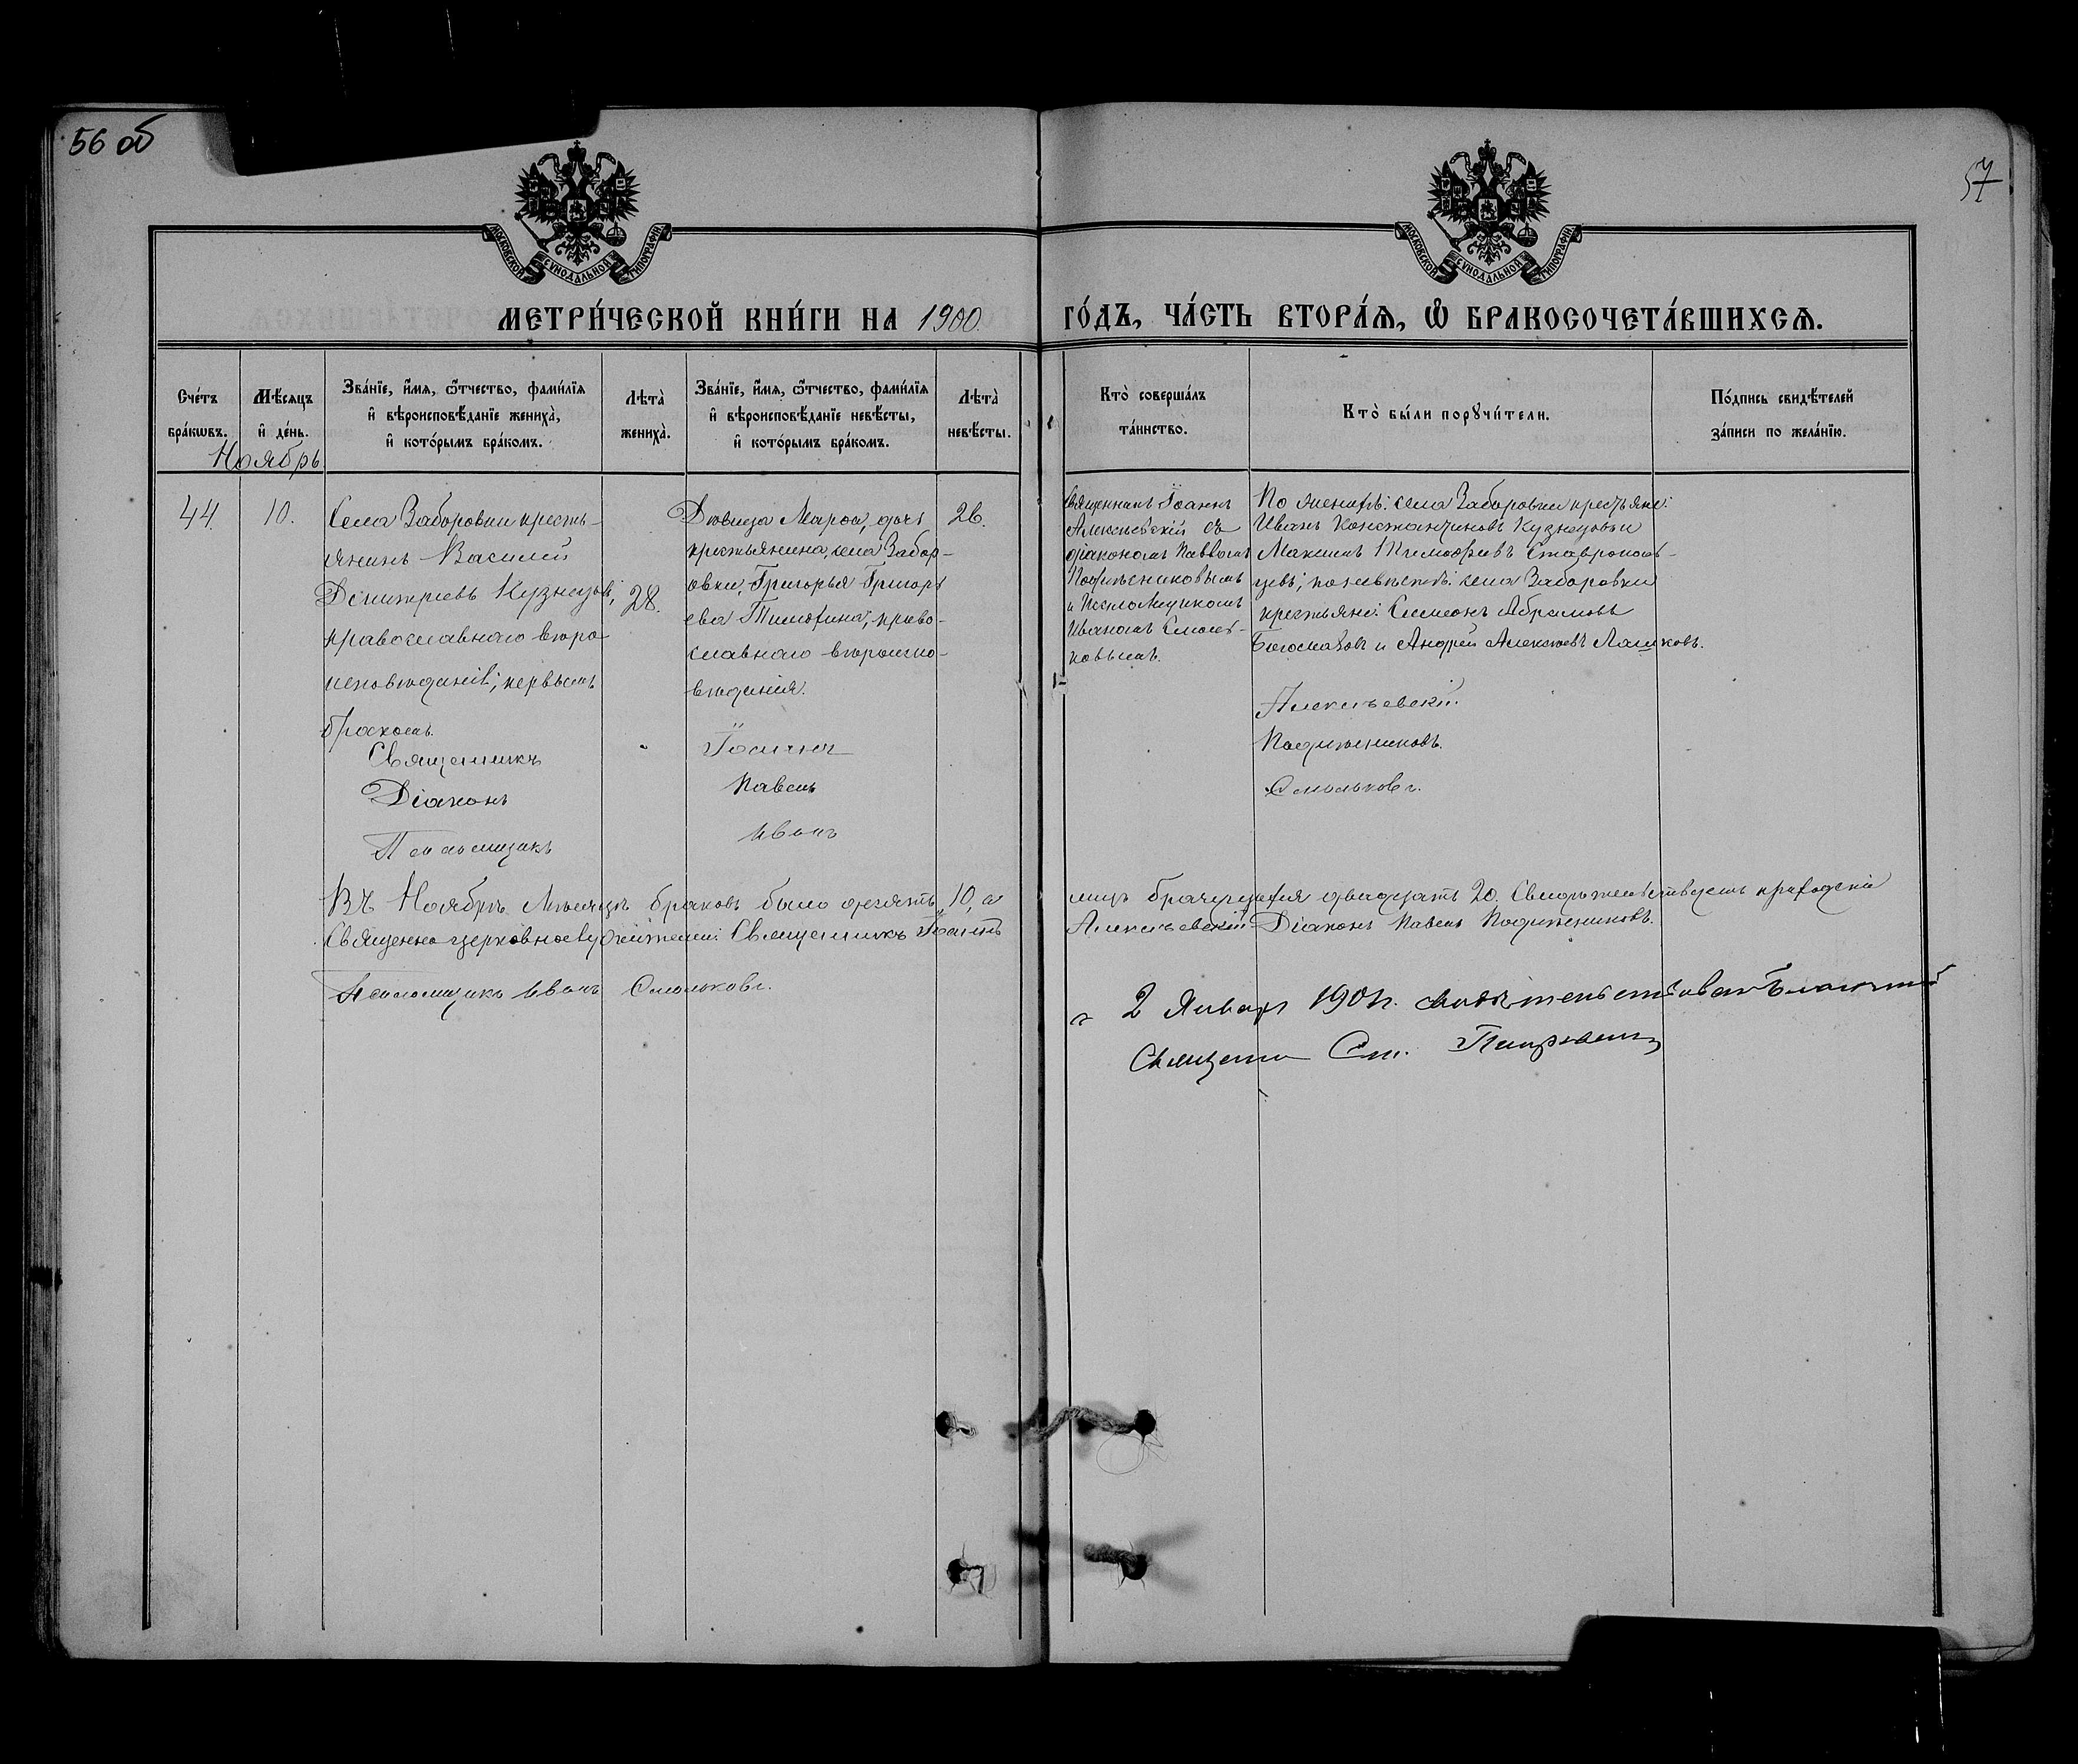 56 об
57
МОСКОВСКОЙ СѴНОДАЛЬНОЙ ТИПОГРАФІИ
МОСКОВСКОЙ СѴНОДАЛЬНОЙ ТИПОГРАФІИ
МЕТРИ́ЧЕСКОЙ КНИ́ГИ НА 1900
ГО́ДЪ, ЧА́СТЬ ВТОРА́Ѧ, Ѡ БРАКОСОЧЕТА́ВШИХСѦ.
Сче́тъ бра́кѡвъ.
Мѣ́сѧцъ и҆ де́нь.
Зва́нїе, и҆́мѧ, ѻ҆́тчество, фами́лїѧ
и҆ вѣроисповѣ́данїе жениха̀,
и҆ кото́рымъ бра́комъ.
Лѣта̀ жениха̀.
Зва́нїе, и҆́мѧ, ѻ҆́тчество, фами́лїѧ
и҆ вѣроисповѣ́данїе невѣ́сты,
и҆ кото́рымъ бра́комъ.
Лѣта̀ невѣ́сты.
Кто̀ соверша́лъ та́инство.
Кто̀ бы́ли порꙋчи́тели.
По́дпись свидѣ́телей за́писи по жела́нїю.
Ноябрь
44.
10.
Села Заборовки кресть-
янинъ Василій
Димитріевъ Кузнецовъ,
православнаго вѣро
исповѣданія; первымъ
бракомъ.
28.
Дѣвица Марѳа, дочь
крестьянина, села Забор-
овки, Григорья Григорь
ева Тимофина, право-
славнаго вѣроиспо-
вѣданія.
26.
Священникъ Іоаннъ
Алексѣевскій съ
діакономъ Павломъ
Подпѣсниковымъ
и Псаломщикомъ
Иваномъ Смоль-
ковымъ.
По женихѣ: села Заборовки крестьяне:
Иванъ Константиновъ Кузнецовъ и
Максимъ Тимофеевъ Ставрополь-
цевъ; по невѣстѣ: села Заборовки
крестьяне: Симеонъ Абрамовъ
и Андрей Алексѣевъ Лашковъ.
Священникъ Іоаннъ Алексѣевскій
Діаконъ Павелъ Подпѣсниковъ.
Псаломщикъ Иванъ Смольковъ.
Въ Ноябрѣ Мѣсяцѣ браковъ было десять, 10, а лицъ брачущихся двадцать 20. Свидѣтельствуемъ приходскіе
Священно церковнослужители: Священникъ Іоаннъ Алексѣевскій Діаконъ Павелъ Подпѣсниковъ.
Псаломщикъ Иванъ Смольковъ.
2 Января 1901 г. свидѣтельствовалъ Благочинный
Священникъ Ст.